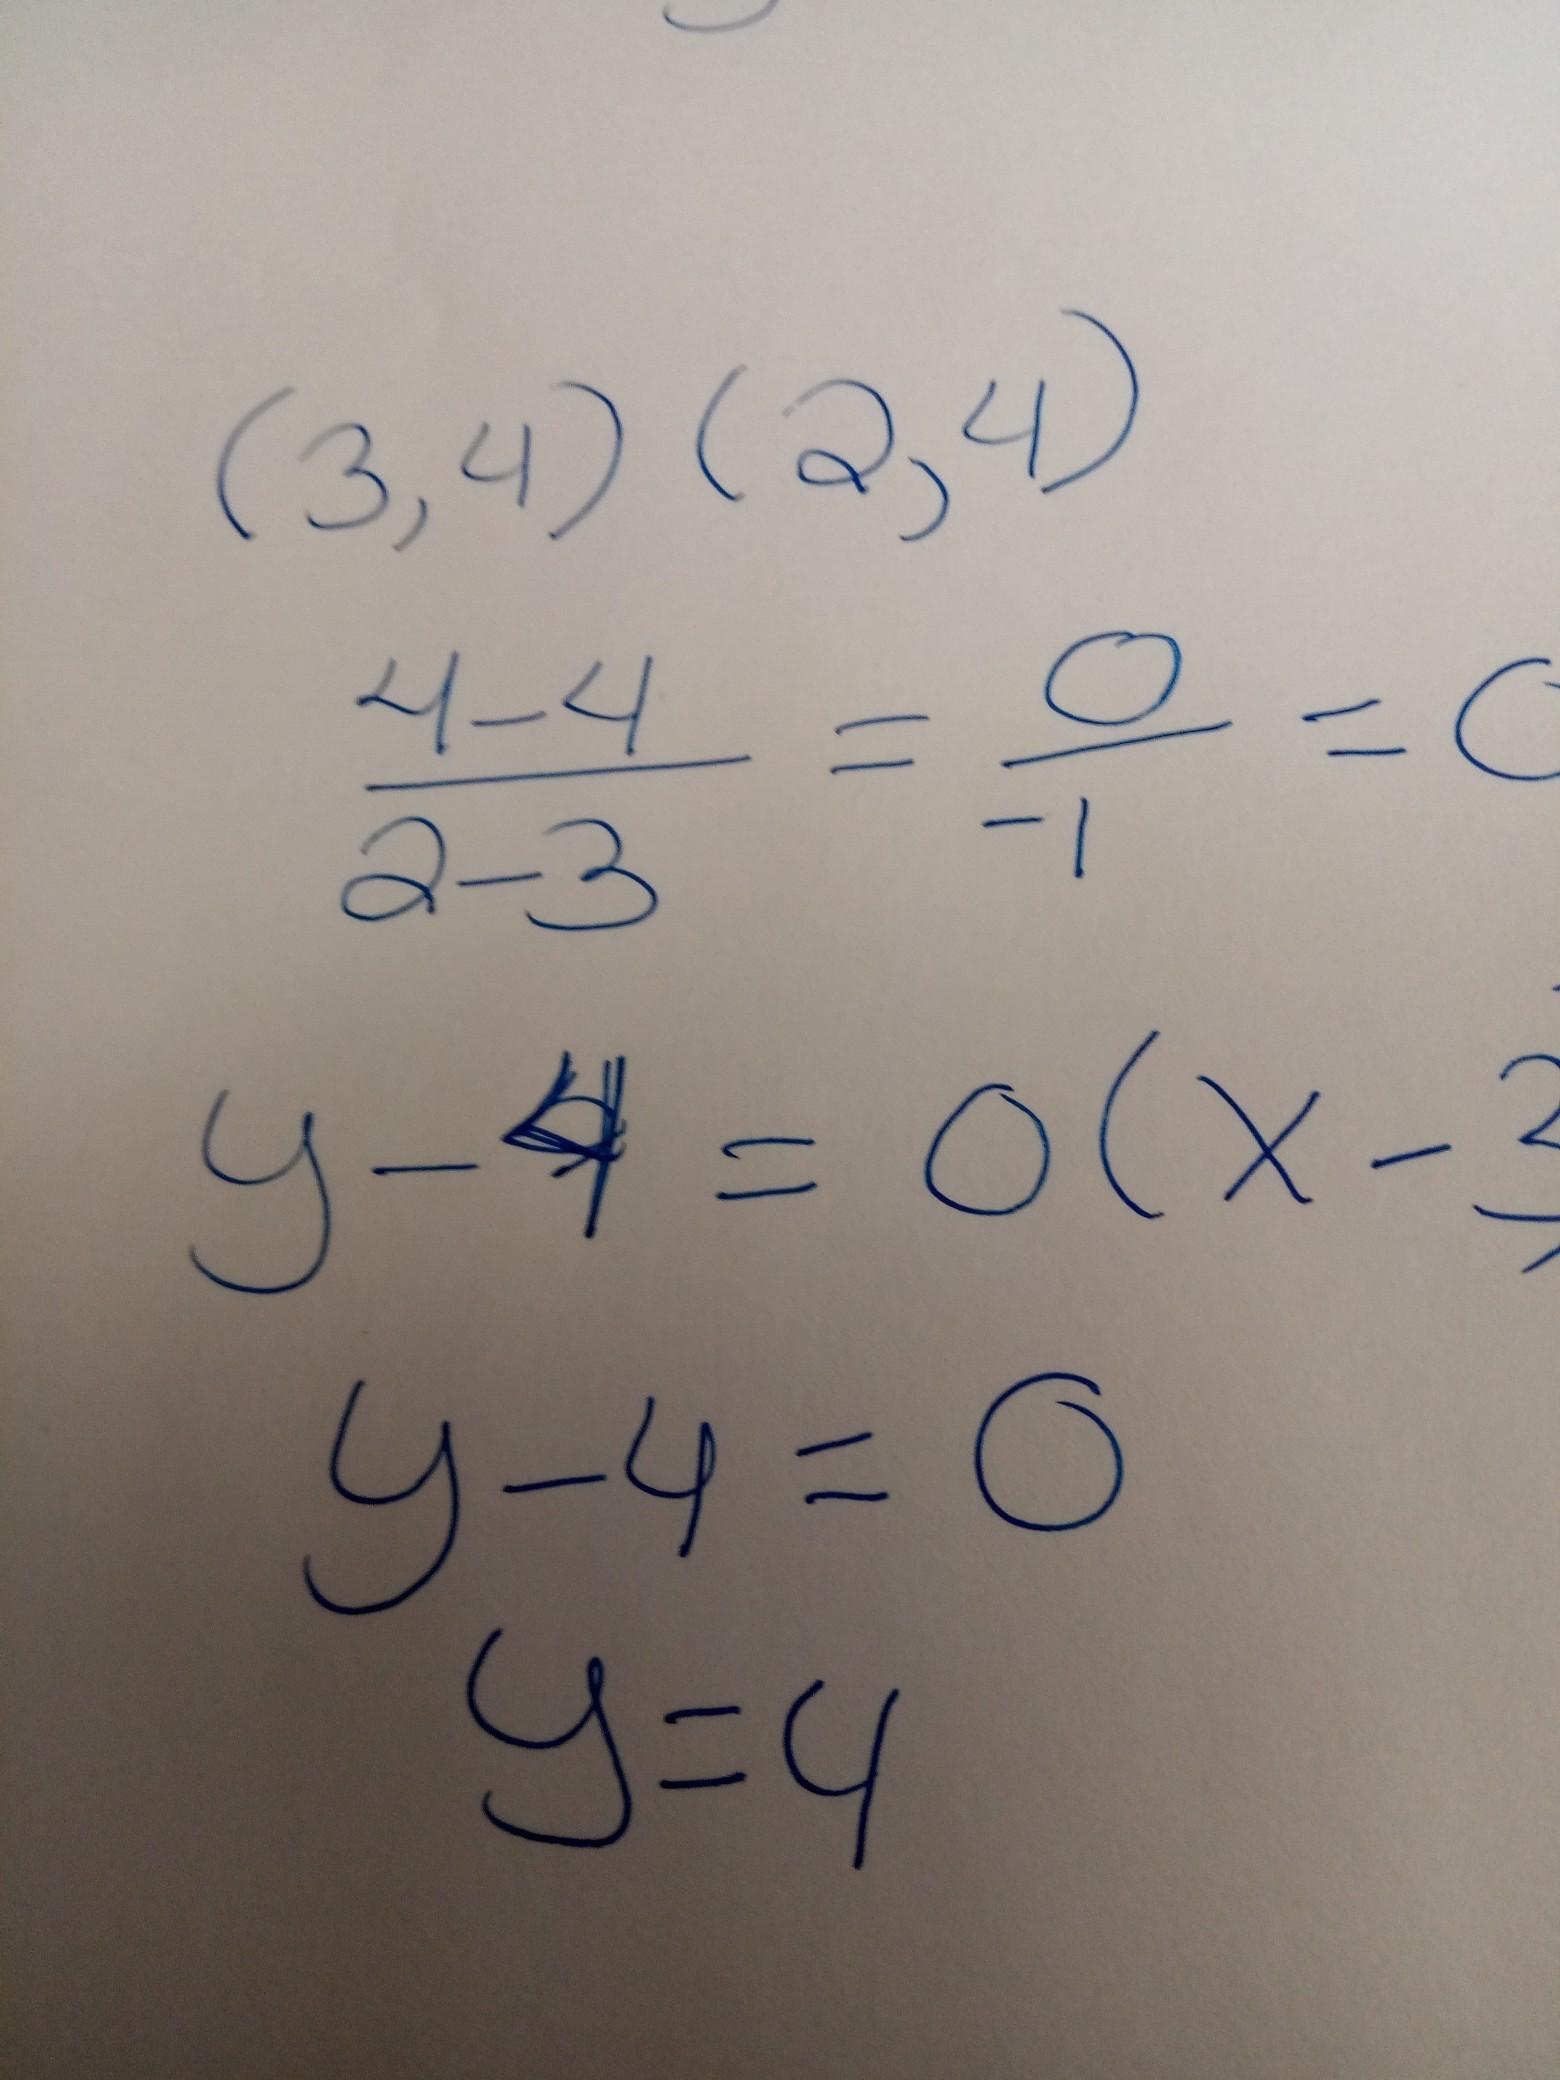 (3,4) (2,4)
4-4/2-3 = 0/-1 = 0
y-4 = 0(x-3)
y-4 = 0
y=4